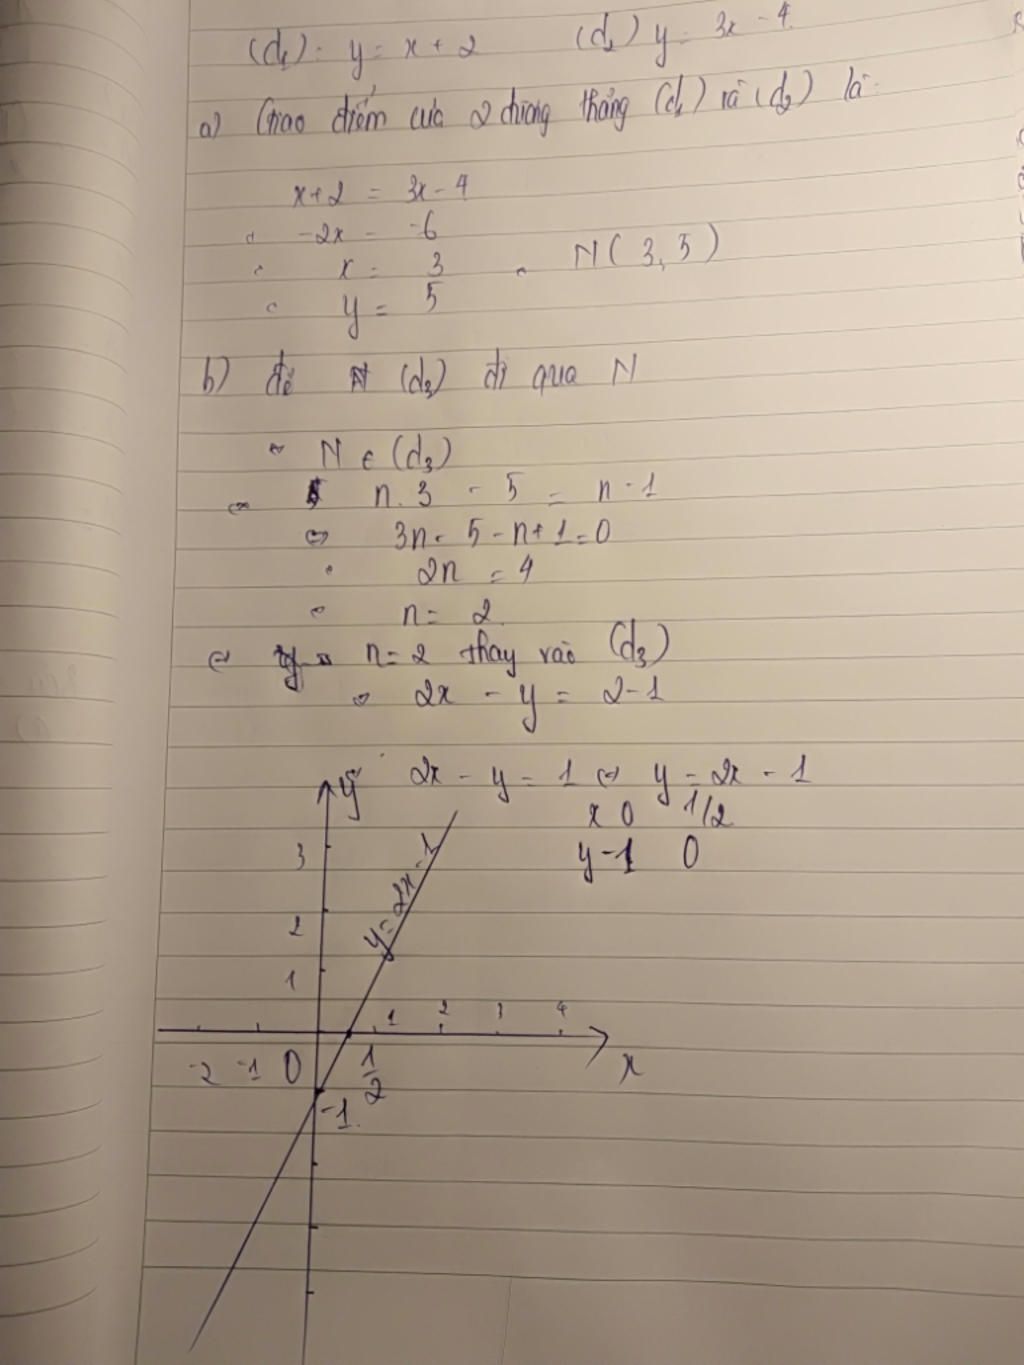 (d₁): y = x + 2 (d₂) y = 3x - 4
a) Giao điểm của 2 đường thẳng (d₁) và (d₂) là:
x+2 = 3x - 4
-2x = -6
x = 3 N(3,5)
y = 5
b) để (d₃) đi qua N
N ∈ (d₃)
⇔ n.3 - 5 = n-1
⇔ 3n - 5 - n + 1 = 0
2n = 4
n = 2
⇔ n=2 thay vào (d₃)
⇔ 2x - y = 2-1
2x - y = 1 ⇔ y = 2x - 1
x 0 1/2
y -1 0
y
3
2
1
y = 2x - 1
1 2 3 4
-2 -1 0 1/2 x
-1